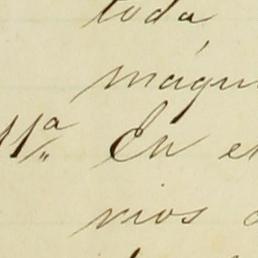 toda
máqui
11ª En e
vios